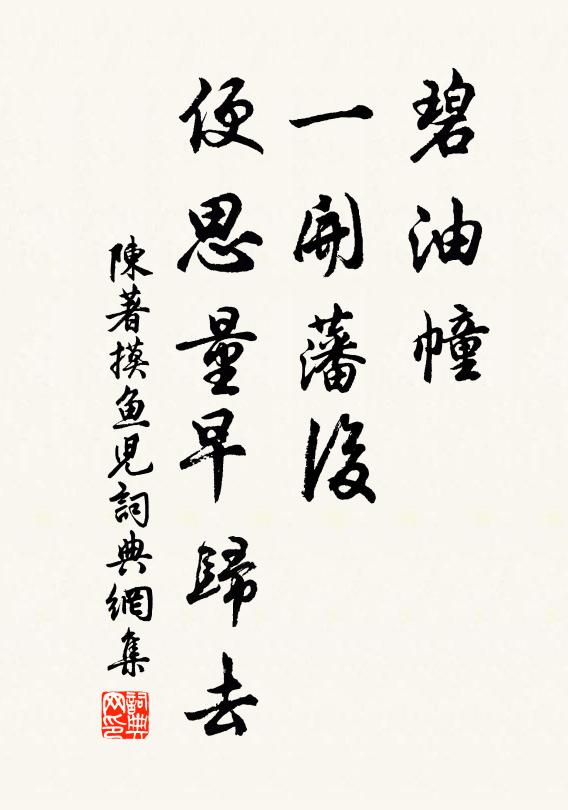 碧油幢
一開藩後
便思量早歸去
陳著摸魚兒詞典網集
詞典网印